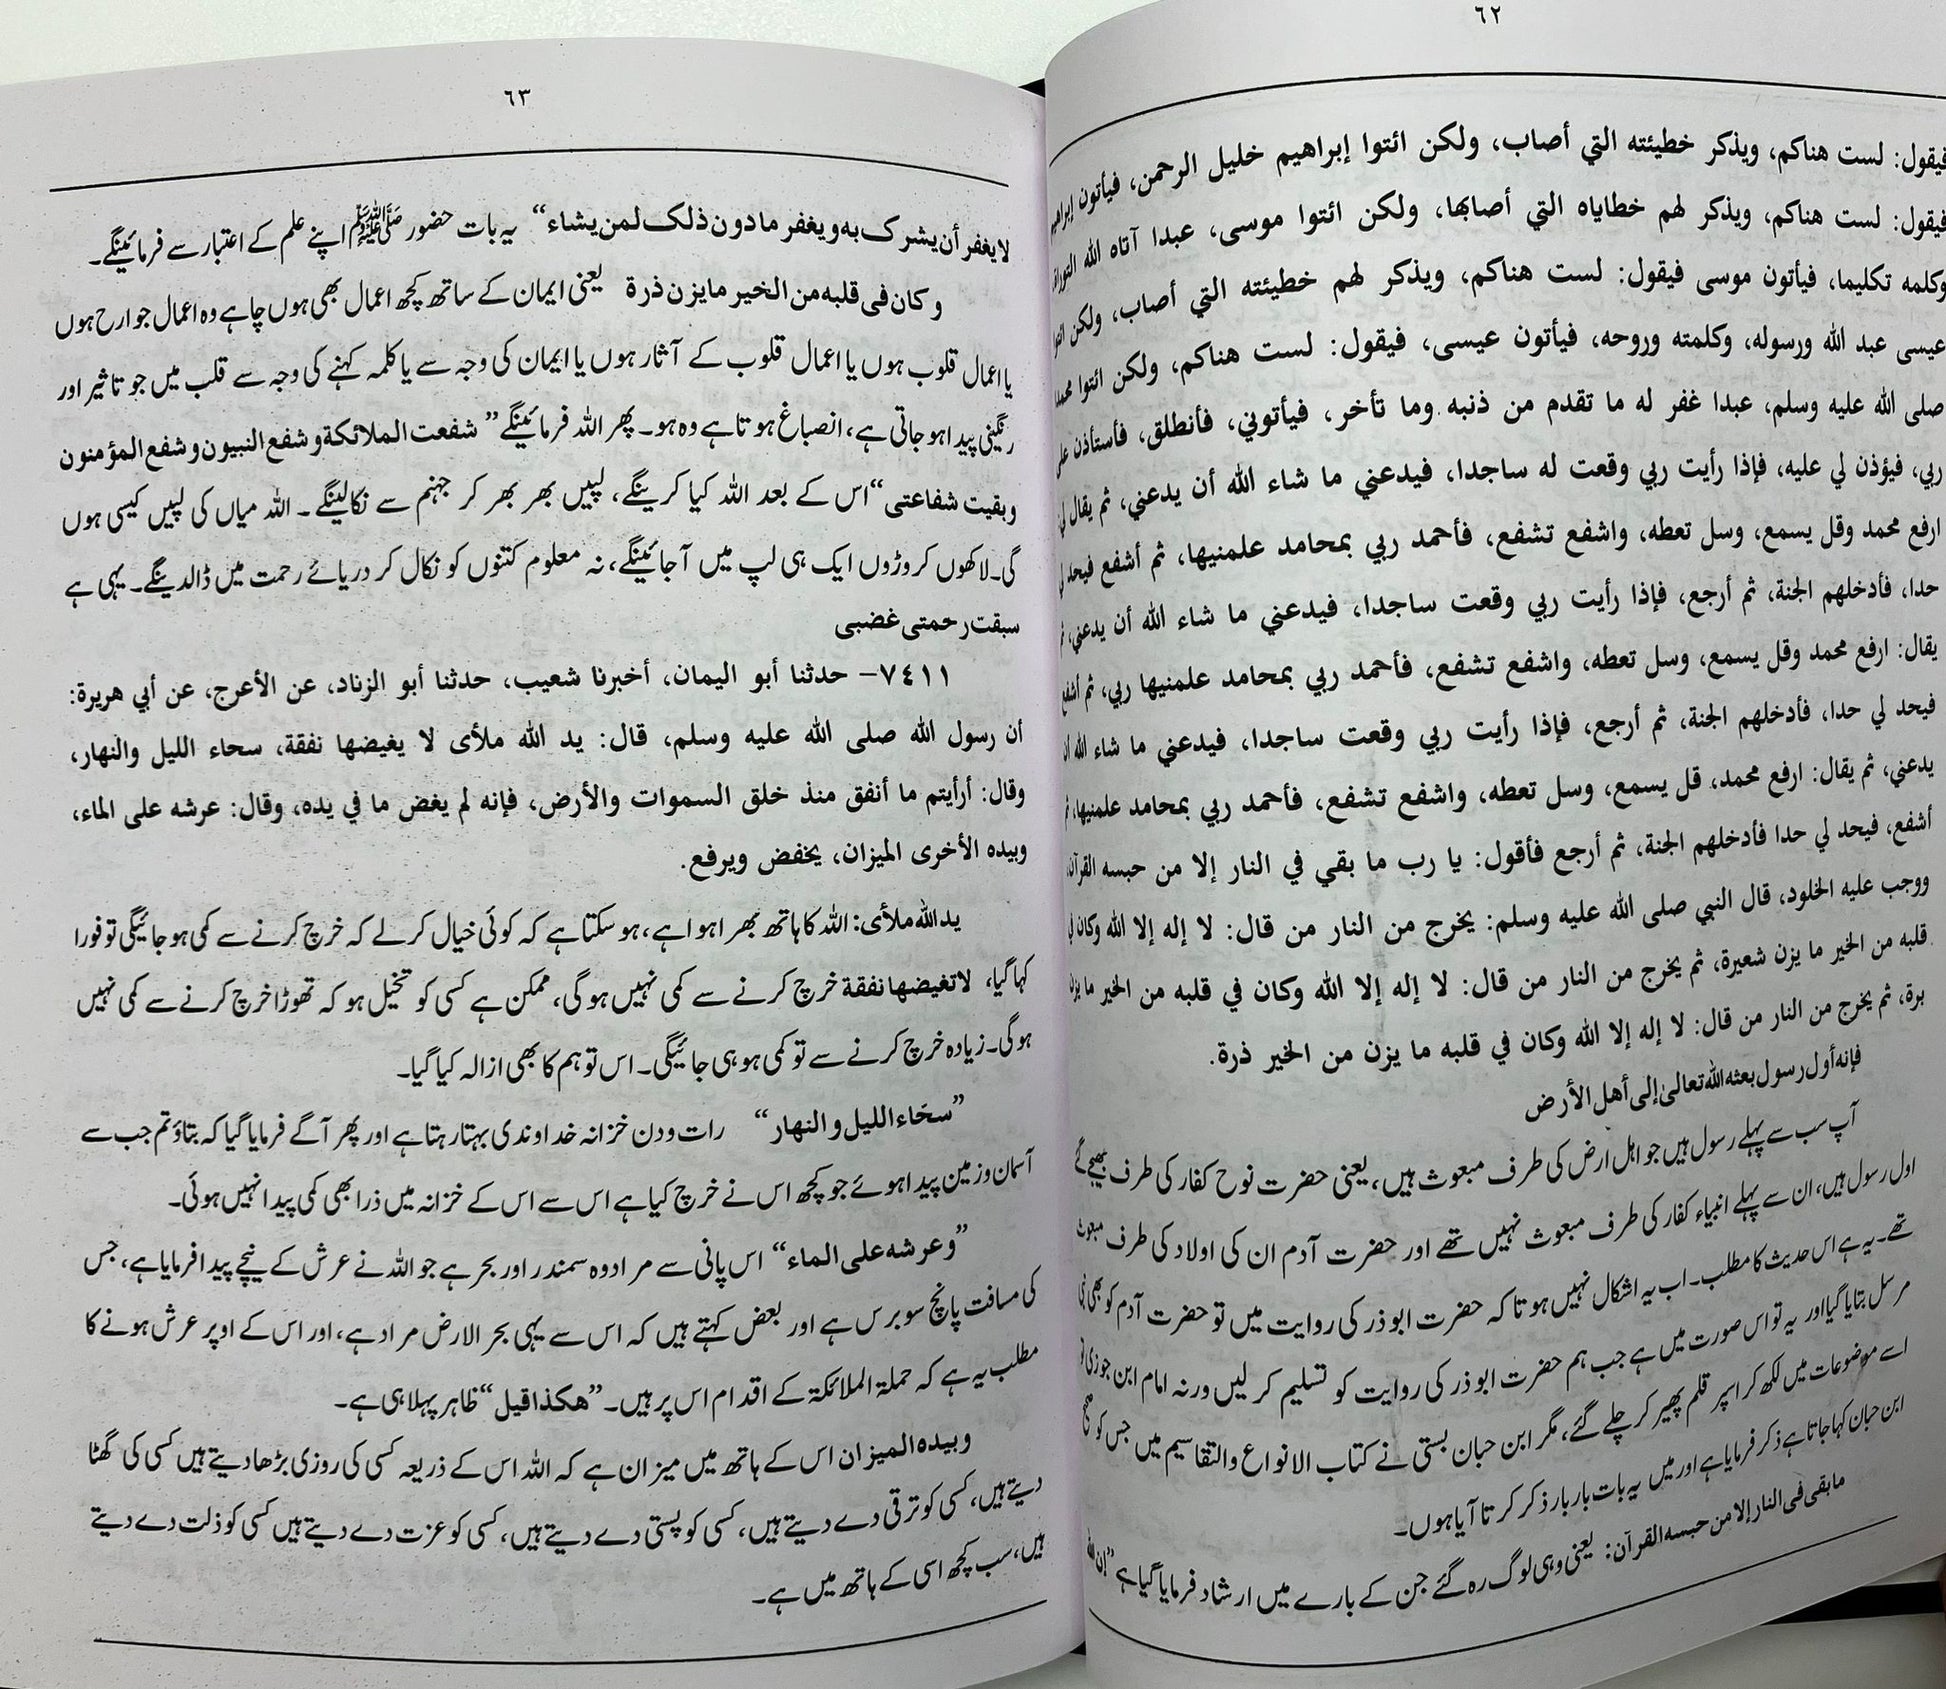 ٦٢
فيقول: لست هناكم، ويذكر خطيئته التي أصاب، ولكن ائتوا إبراهيم خليل الرحمن، فيأتون إبراهيم
فيقول: لست هناكم، ويذكر لهم خطاياه التي أصابها، ولكن ائتوا موسى، عبدا آتاه الله التوراة
وكلمه تكليما، فيأتون موسى فيقول: لست هناكم، ويذكر لهم خطيئته التي أصاب، ولكن ائتوا
عيسى عبد الله ورسوله، وكلمته وروحه، فيأتون عيسى، فيقول: لست هناكم، ولكن ائتوا محمدا
صلى الله عليه وسلم، عبدا غفر له ما تقدم من ذنبه وما تأخر، فيأتوني، فأنطلق، فأستأذن على
ربي، فيؤذن لي عليه، فإذا رأيت ربي وقعت له ساجدا، فيدعني ما شاء الله أن يدعني، ثم يقال لي
ارفع محمد وقل يسمع، وسل تعطه، واشفع تشفع، فأحمد ربي بمحامد علمنيها، ثم أشفع فيحد لي
حدا، فأدخلهم الجنة، ثم أرجع، فإذا رأيت ربي وقعت ساجدا، فيدعني ما شاء الله أن يدعني،
يقال: ارفع محمد وقل يسمع، وسل تعطه، واشفع تشفع، فأحمد ربي بمحامد علمنيها ربي، ثم أشفع
فيحد لي حدا، فأدخلهم الجنة، ثم أرجع، فإذا رأيت ربي وقعت ساجدا، فيدعني ما شاء الله أن
يدعني، ثم يقال: ارفع محمد، قل يسمع، وسل تعطه، واشفع تشفع، فأحمد ربي بمحامد علمنيها،
أشفع، فيحد لي حدا فأدخلهم الجنة، ثم أرجع فأقول: يا رب ما بقي في النار إلا من حبسه القرآن،
ووجب عليه الخلود، قال النبي صلى الله عليه وسلم: يخرج من النار من قال: لا إله إلا الله وكان في
قلبه من الخير ما يزن شعيرة، ثم يخرج من النار من قال: لا إله إلا الله وكان في قلبه من الخير ما يزن
برة، ثم يخرج من النار من قال: لا إله إلا الله وكان في قلبه ما يزن من الخير ذرة.
فإنه أول رسول بعثه الله تعالیٰ إلى أهل الأرض
آپ سب سے پہلے رسول ہیں جو اہل ارض کی طرف مبعوث ہیں، یعنی حضرت نوح کفار کی طرف بھیجے گئے
اول رسول ہیں، ان سے پہلے انبیاء کفار کی طرف مبعوث نہیں تھے اور حضرت آدم ان کی اولاد کی طرف مبعوث
تھے۔ یہ ہے اس حدیث کا مطلب۔ اب یہ اشکال نہیں ہوتا کہ حضرت ابوذر کی روایت میں تو حضرت آدم کو بھی نبی
مرسل بتایا گیا اور یہ تو اس صورت میں ہے جب ہم حضرت ابوذر کی روایت کو تسلیم کر لیں ورنہ امام ابن جوزی تو
اسے موضوعات میں لکھ کر اسپر قلم پھیر کر چلے گئے، مگر ابن حبان بستی نے کتاب الانواع والتقاسیم میں جس کو صحیح
ابن حبان کہا جاتا ہے ذکر فرمایا ہے اور میں یہ بات بار بار ذکر کرتا آیا ہوں۔
مابقی فی النار إلا من حبسه القرآن: یعنی وہی لوگ رہ گئے جن کے بارے میں ارشاد فرمایا گیا ہے ”إن الله
٦٣
لا یغفر أن یشرک به ویغفر ما دون ذلک لمن یشاء“ یہ بات حضور ﷺ اپنے علم کے اعتبار سے فرمائینگے۔
وکان فی قلبه من الخیر ما یزن ذرة یعنی ایمان کے ساتھ کچھ اعمال بھی ہوں چاہے وہ اعمال جوارح ہوں
یا اعمال قلوب ہوں یا اعمال قلوب کے آثار ہوں یا ایمان کی وجہ سے یا کلمہ کہنے کی وجہ سے قلب میں جو تاثیر اور
رنگینی پیدا ہو جاتی ہے، انصباغ ہوتا ہے وہ ہو۔ پھر اللہ فرمائینگے ”شفعت الملائکة وشفع النبیون وشفع المؤمنون
وبقیت شفاعتی“ اس کے بعد اللہ کیا کرینگے، لپیں بھر بھر کر جہنم سے نکالینگے۔ اللہ میاں کی لپیں کیسی ہوں
گی۔ لاکھوں کروڑوں ایک ہی لپ میں آجائینگے، نہ معلوم کتنوں کو نکال کر دریائے رحمت میں ڈالدینگے۔ یہی ہے
سبقت رحمتی غضبی
٧٤١١- حدثنا أبو اليمان، أخبرنا شعيب، حدثنا أبو الزناد، عن الأعرج، عن أبي هريرة:
أن رسول الله صلى الله عليه وسلم، قال: يد الله ملأى لا يغيضها نفقة، سحاء الليل والنهار،
وقال: أرأيتم ما أنفق منذ خلق السموات والأرض، فإنه لم يغض ما في يده، وقال: عرشه على الماء،
وبيده الأخرى الميزان، يخفض ويرفع.
ید الله ملأی: اللہ کا ہاتھ بھرا ہوا ہے، ہو سکتا ہے کہ کوئی خیال کرلے کہ خرچ کرنے سے کمی ہو جائیگی تو فورا
کہا گیا، لا تغیضها نفقة خرچ کرنے سے کمی نہیں ہوگی، ممکن ہے کسی کو تخیل ہو کہ تھوڑا خرچ کرنے سے کمی نہیں
ہوگی۔ زیادہ خرچ کرنے سے تو کمی ہو ہی جائیگی۔ اس توہم کا بھی ازالہ کیا گیا۔
”سحّاء اللیل والنهار“ رات و دن خزانہ خداوندی بہتا رہتا ہے اور پھر آگے فرمایا گیا کہ بتاؤ تم جب سے
آسمان و زمین پیدا ہوئے جو کچھ اس نے خرچ کیا ہے اس سے اس کے خزانہ میں ذرا بھی کمی پیدا نہیں ہوئی۔
”وعرشه علی الماء“ اس پانی سے مراد وہ سمندر اور بحر ہے جو اللہ نے عرش کے نیچے پیدا فرمایا ہے، جس
کی مسافت پانچ سو برس ہے اور بعض کہتے ہیں کہ اس سے یہی بحر الارض مراد ہے، اور اس کے اوپر عرش ہونے کا
مطلب یہ ہے کہ حملۃ الملائکۃ کے اقدام اس پر ہیں۔ ”هکذا قیل“ ظاہر پہلا ہی ہے۔
وبیده المیزان اس کے ہاتھ میں میزان ہے کہ اللہ اس کے ذریعہ کسی کی روزی بڑھا دیتے ہیں کسی کی گھٹا
دیتے ہیں، کسی کو ترقی دے دیتے ہیں، کسی کو پستی دے دیتے ہیں، کسی کو عزت دے دیتے ہیں کسی کو ذلت دے دیتے
ہیں، سب کچھ اسی کے ہاتھ میں ہے۔